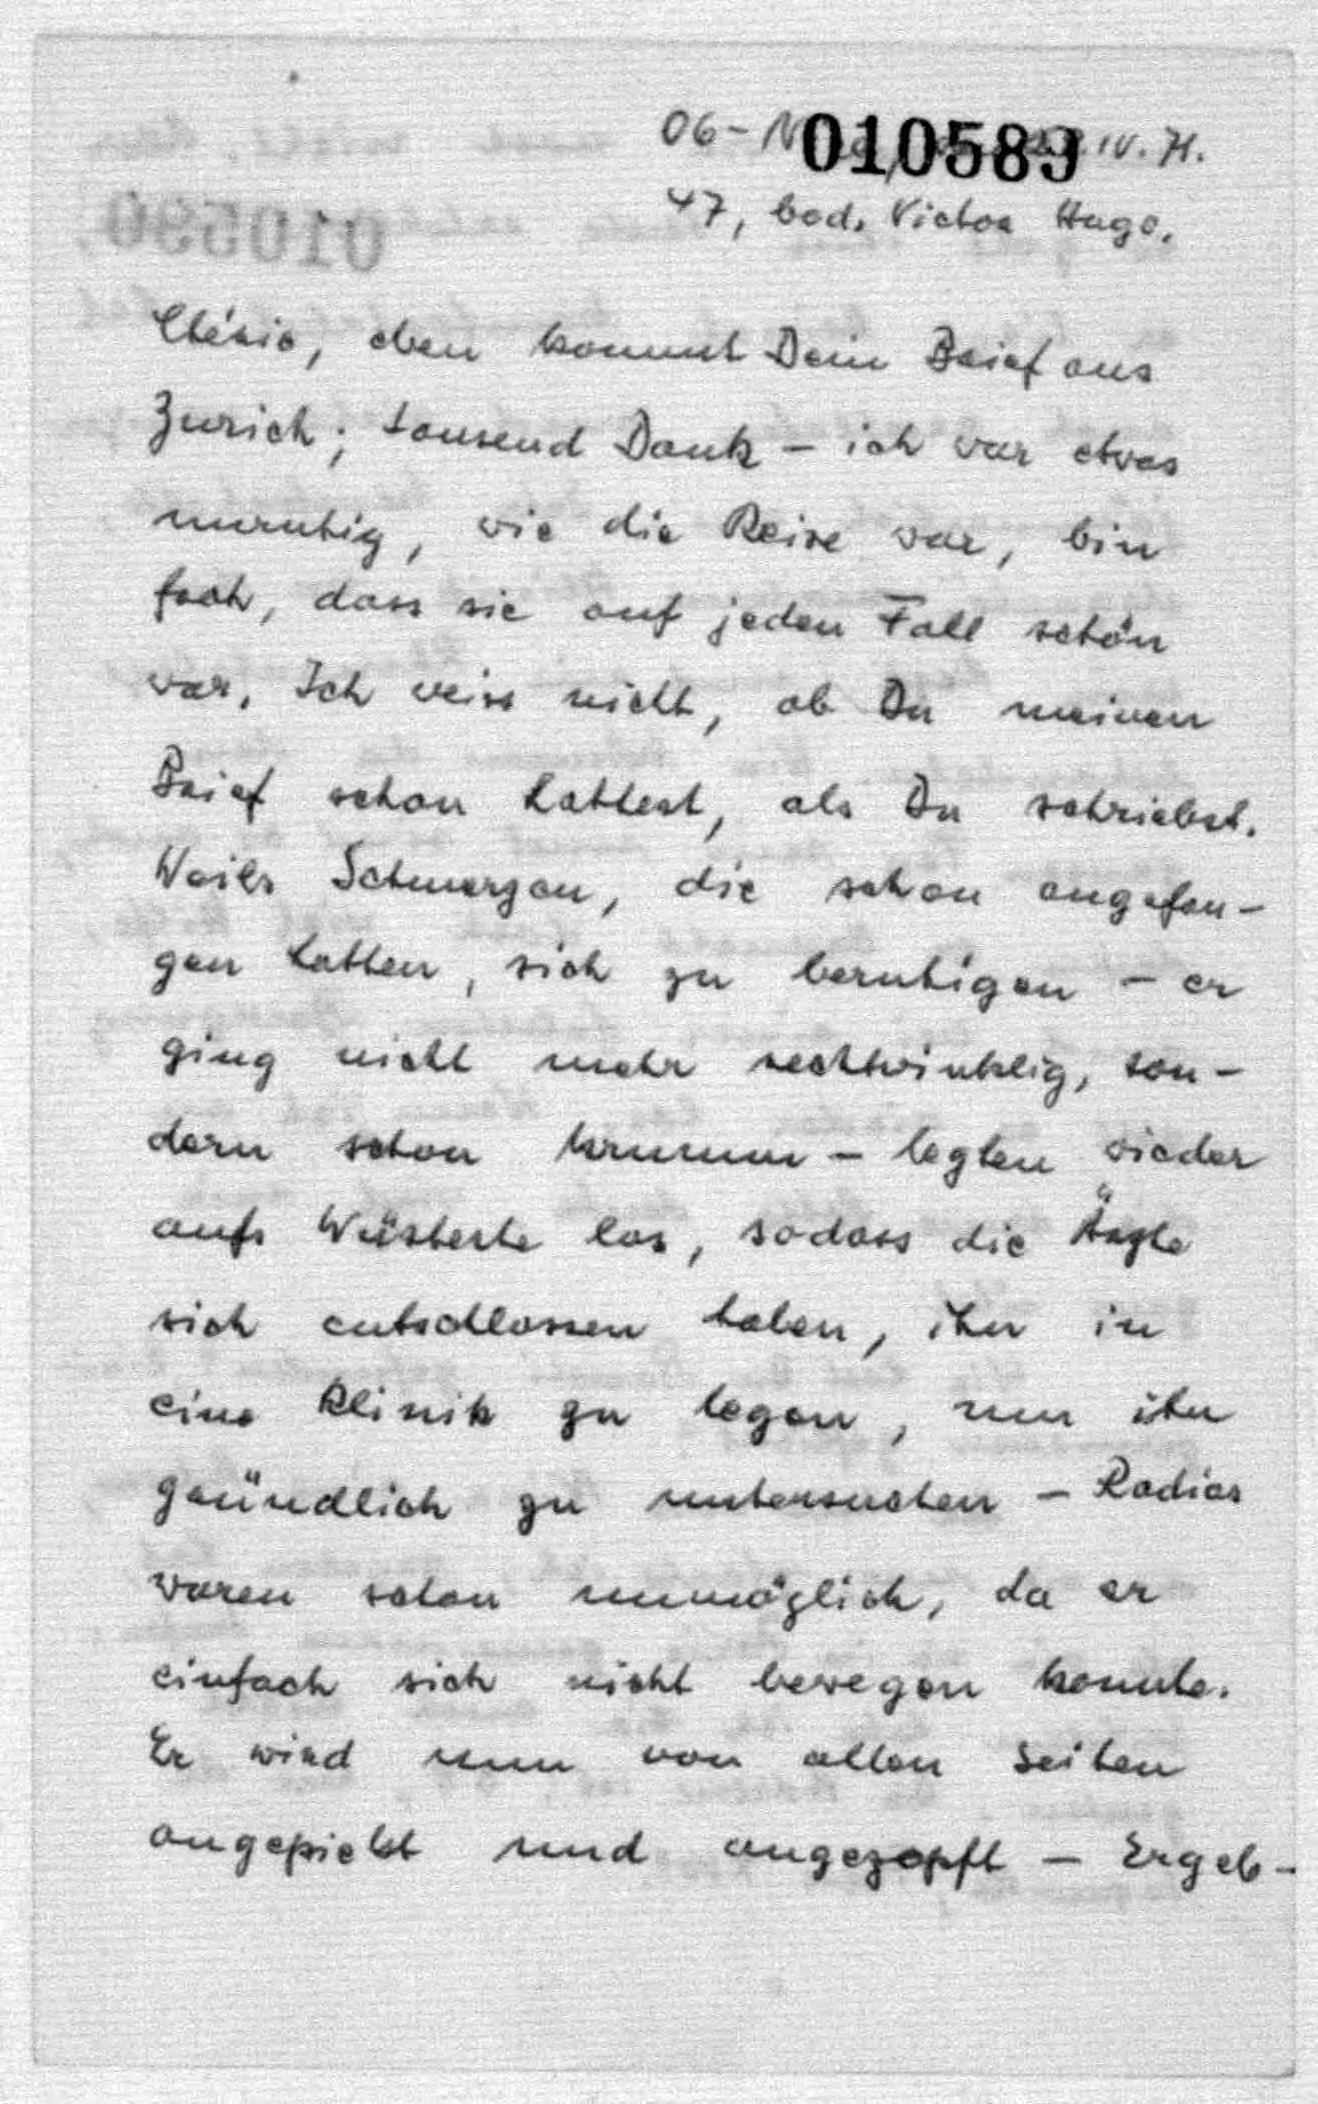 06-N 010589 IV. 71.
47, bod. Victor Hugo.
010590
Chérie, eben kommt Dein Brief aus
Zurich; tausend Dank - ich war etwas
unruhig, wie die Reise war, bin
froh, dass sie auf jeden Fall schön
war. Ich weiss nicht, ob Du meinen
Brief schon hattest, als Du schriebst.
Weils Schmerzen, die schon angefan-
gen hatten, sich zu beruhigen - er
ging nicht mehr rechtwinklig, son-
dern schon krumm - legten wieder
aufs Wüsteste los, sodass die Ärzte
sich entschlossen haben, ihn in
eine Klinik zu legen, um ihn
gründlich zu untersuchen - Radios
waren schon unmöglich, da er
einfach sich nicht bewegen konnte.
Er wird nun von allen Seiten
angepiekt und angezapft - Ergeb-